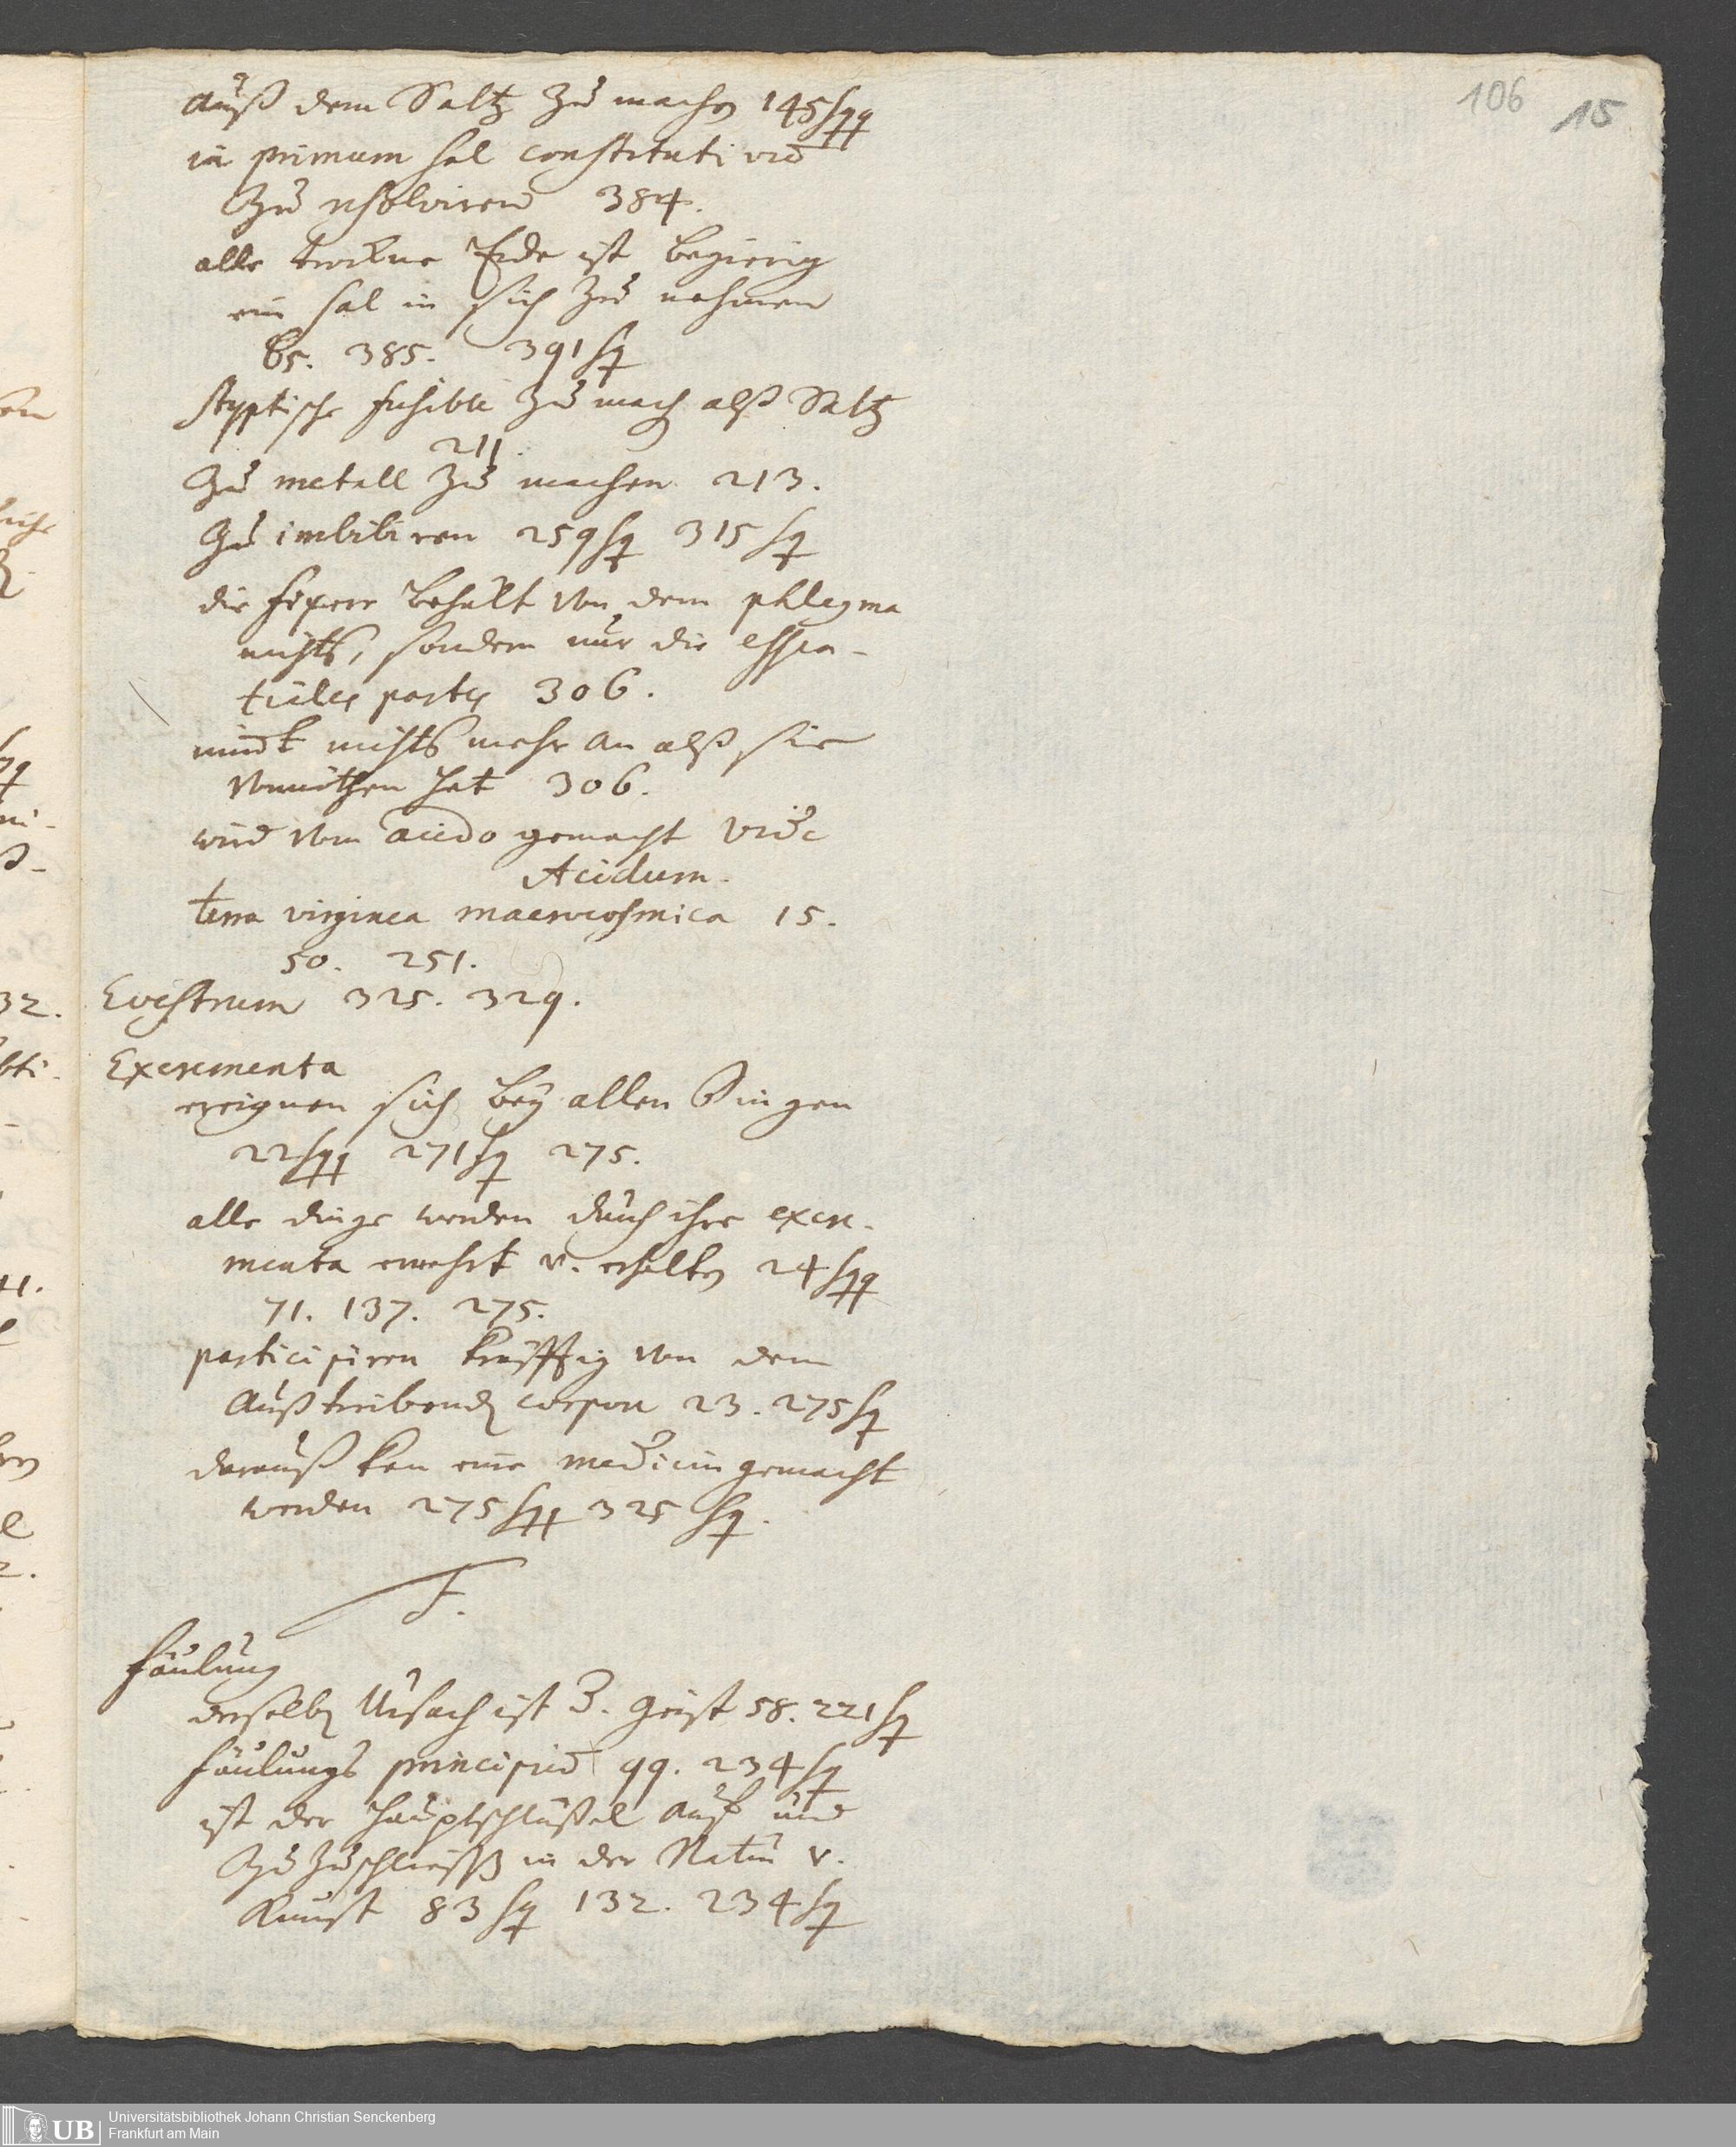 106 15
auß dem Saltz zu machen 145sqq
in primum sal constitutivū
zu resolviren 384.
alle trockne Erde ist begierig
ein sal in sich zu nehmen
85. 385. 391sq
styptische fusible zu mach alß Saltz
211.
zu metall zu machen 213.
zu imbibiren 259sq 315sq
die fixere behält von dem phlegma
nichts, sondern nur die essen-
tiales partes 306.
nim̄t nichts mehr an alß sie
vonnöthen hat 306.
wird vom acido gemacht vide
Acidum.
terra virginea macrocosmica 15.
50. 251.
Evestrum 325. 329.
Excrementa
ereignen sich bey allen Dingen
22sqq 271sq 275.
alle dinge werden durch ihre excre-
menta ernehrt v. erhalten 24sqq
71. 137. 275.
participiren kräfftig von dem
außtreibenden corpore 23. 275sq
darauß kan eine medicin gemacht
werden 275sqq 325sq.
F.
Fäulung
derselben Ursach ist d. Geist 58. 221sq
Fäulungs principiū 99. 234sq
ist der Hauptschlüßel auf und
zuzuschließen in der Natur v.
Kunst 83sq 132. 234sq
UB
Universitätsbibliothek Johann Christian Senckenberg
Frankfurt am Main